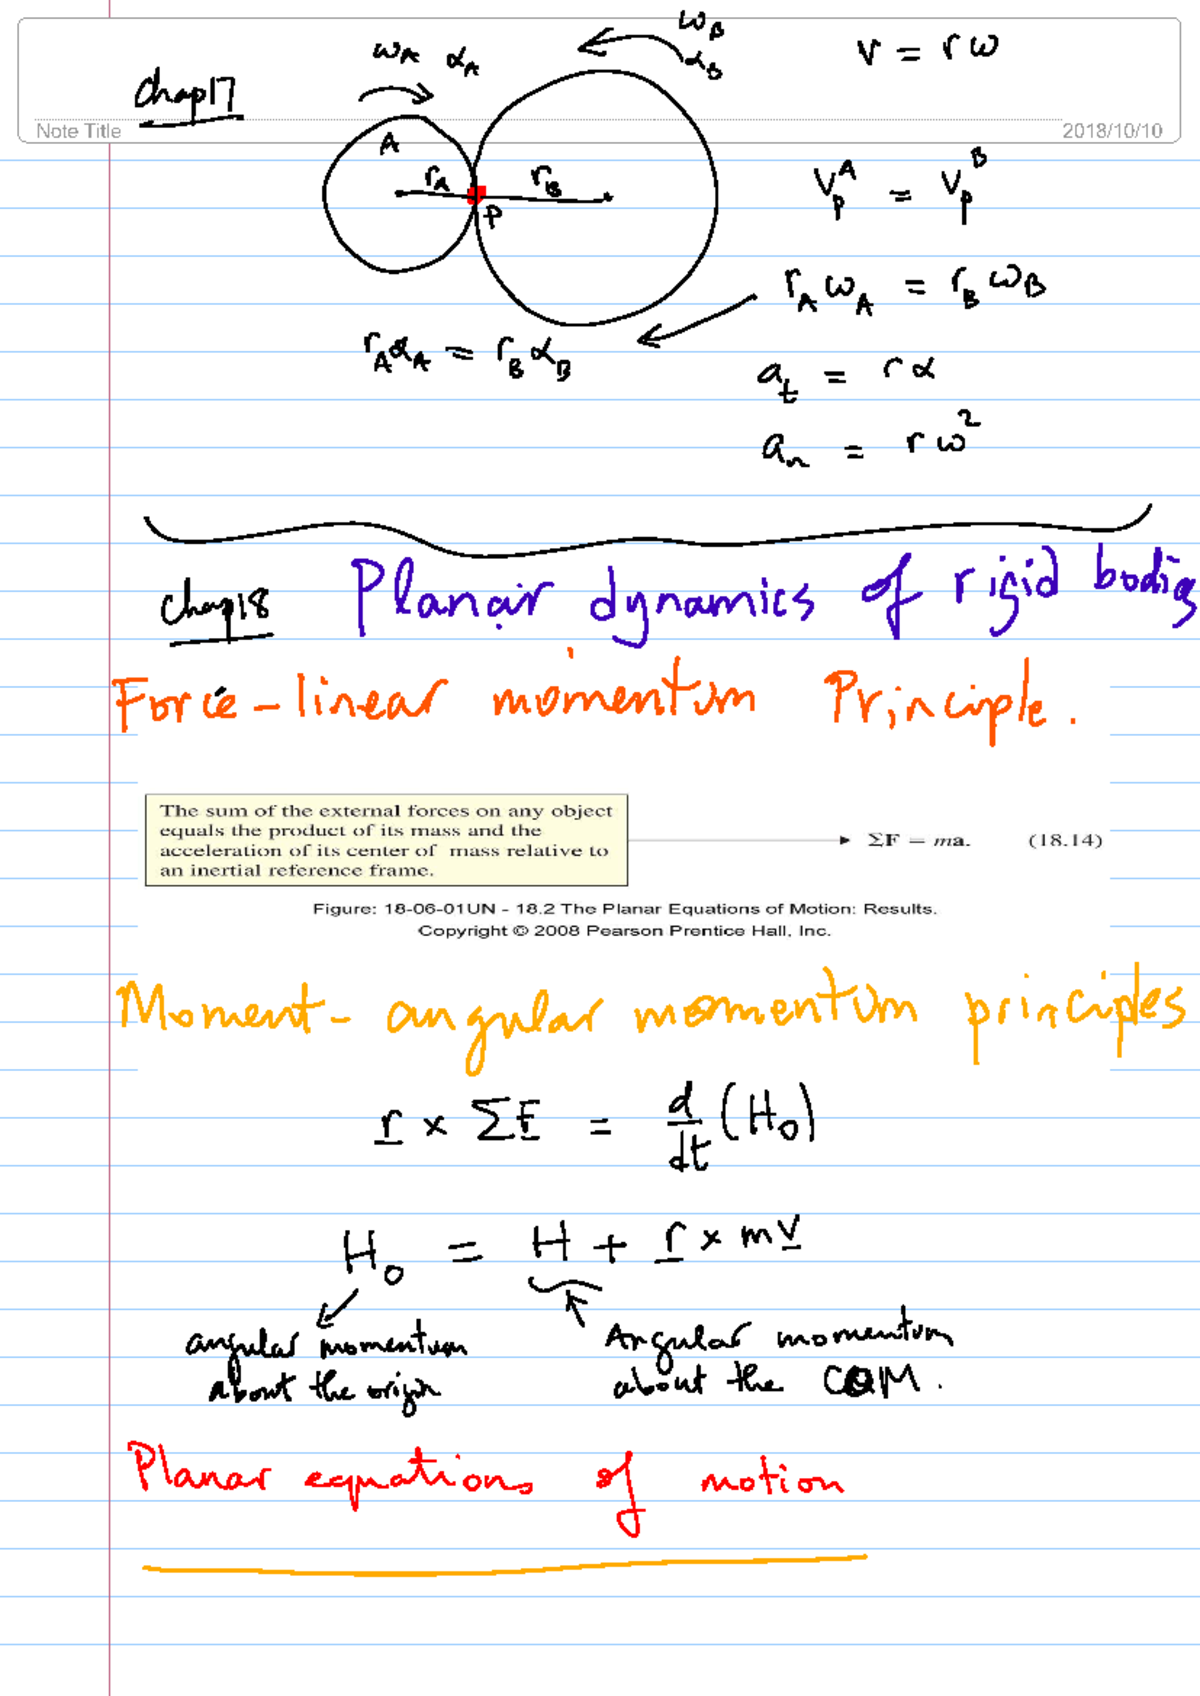 ω_B
ω_A α_A
α_B
v = r ω
Chap17
Note Title
2018/10/10
A
r_A
r_B
P
V_P^A = V_P^B
r_A ω_A = r_B ω_B
r_A α_A = r_B α_B
a_t = r α
a_n = r ω²
Chap18
Planar dynamics of rigid bodies
Force - linear momentum Principle.
The sum of the external forces on any object
equals the product of its mass and the
acceleration of its center of mass relative to
an inertial reference frame.
ΣF = ma. (18.14)
Figure: 18-06-01UN - 18.2 The Planar Equations of Motion: Results.
Copyright © 2008 Pearson Prentice Hall, Inc.
Moment - angular momentum principles
r × ΣF = d/dt (H_O)
H_O = H + r × m v
angular momentum
about the origin
Angular momentum
about the COM.
Planar equations of motion